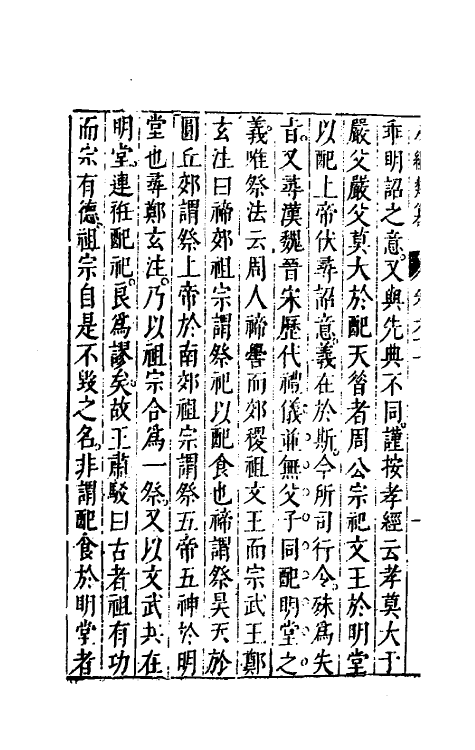 乖明詔之意又與先典不同謹按孝經云孝莫大于
嚴父嚴父莫大於配天昝者周公宗祀文王於明堂
以配上帝伏尋詔意義在於斯今所司行令殊為失
旨又尋漢魏晉宋歷代禮儀並無父子同配明堂之
義唯祭法云周人禘嚳而郊稷祖文王而宗武王鄭
玄注曰禘郊祖宗謂祭祀以配食也禘謂祭昊天於
圓丘郊謂祭上帝於南郊祖宗謂祭五帝五神於明
堂也尋鄭玄注乃以祖宗合為一祭又以文武共在
明堂連袵配祀良為謬矣故王肅駁曰古者祖有功
而宗有德祖宗自是不毀之名非謂配食於明堂者